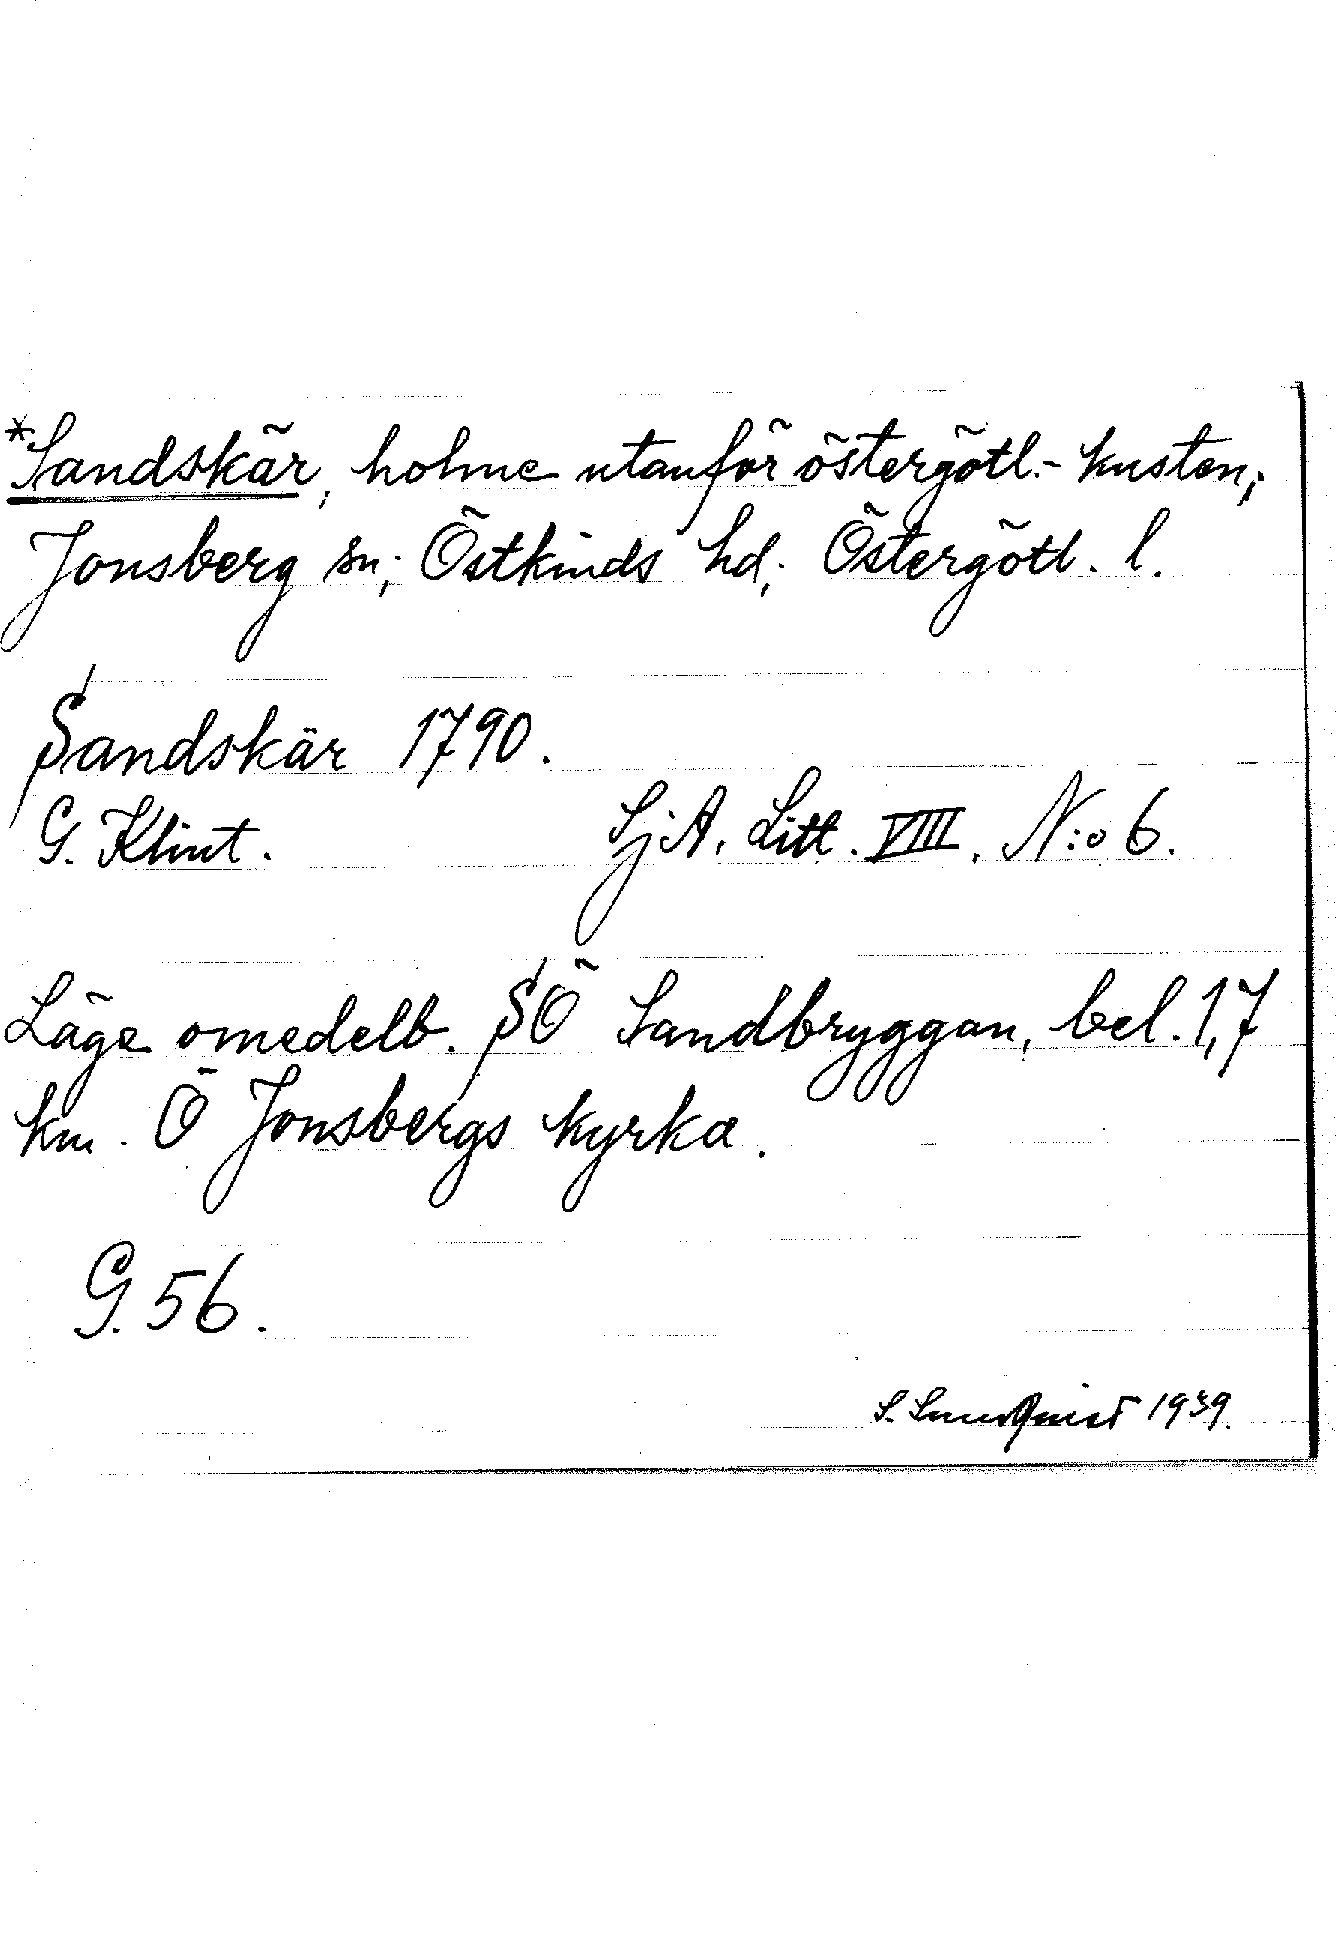 *Sandskär, holme utanför östergötl.- kusten,
Jonsberg sn, Östkinds hd, Östergötl. l.
Sandskär 1790.
G. Klint. SjA. Litt. VIII, N:o 6.
Läge omedelb. SÖ Sandbryggan, bel. 1,7
km. Ö Jonsbergs kyrka.
G. 56.
S. 1939.